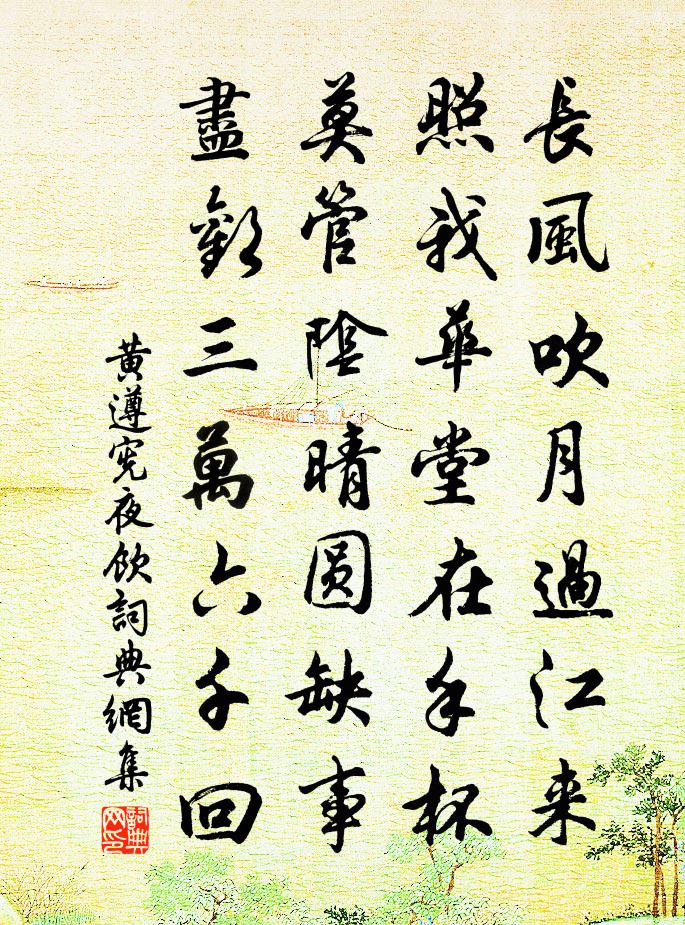 長風吹月過江来
照我華堂在手杯
莫管陰晴圆缺事
盡歡三萬六千回
黄遵宪夜飲詞典網集
詞典网印